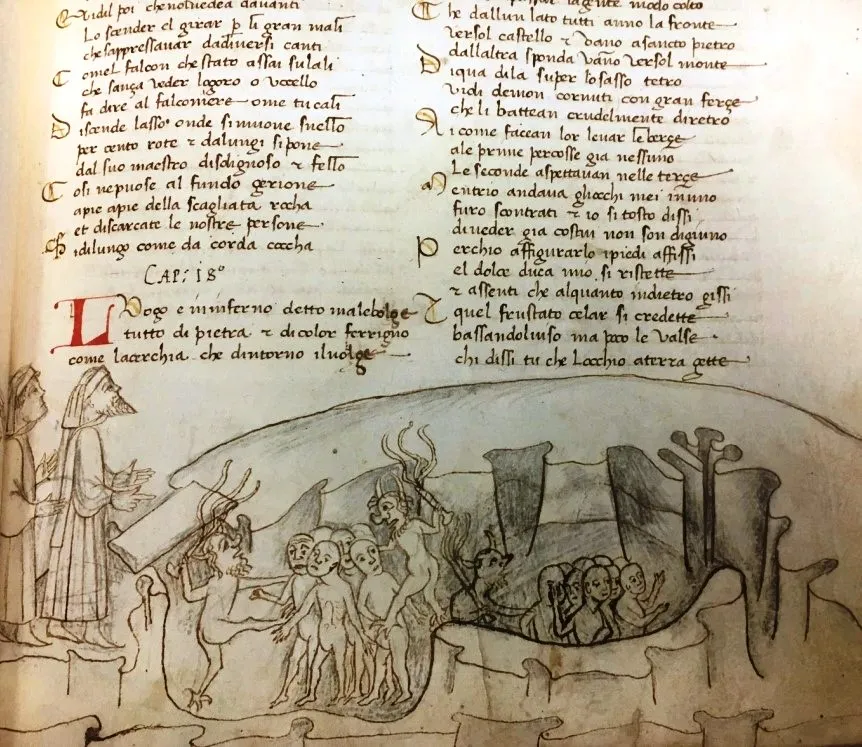 vidil poi che non vedea davanti
Lo scender el girar p li gran mali
che sappressauar dadiuersi canti
Comel falcon che stato assai su lali
che sança ueder logoro o uccello
fa dire al falconiere ome tu cali
Discende lasso onde si muoue snello
per cento rote & dalungi si pone
dal suo maestro disdignoso & fello
Cosi ne puose al fundo gerione
a pie a pie della scagliata rocha
et discarcate le nostre persone
Si dilungo come da corda cocha
CAP: 18°
Luogo e in inferno detto malebolge
tutto di pietra & di color ferrigno
come la cerchia che dintorno il uolge
la gente modo colto
Che dallun lato tutti anno la fronte
uersol castello & uano a sancto pietro
dallaltra sponda uano uersol monte
Di qua di la super lo sasso tetro
uidi demon cornuti con gran ferçe
che li battean crudelmente diretro
Ai come facean lor leuar le berçe
ale prime percosse gia nessuno
Le seconde aspettauan ne le terçe
Mentrio andaua gliocchi mei in uno
furo scontrati & io si tosto dissi
di ueder gia costui non son digiuno
Perchio affigurarlo i piedi affissi
el dolce duca mio si ristette
& assenti che alquanto indietro gissi
E quel frustato celar si credette
bassandol uiso ma poco le ualse
chi dissi tu che Locchio aterra gette